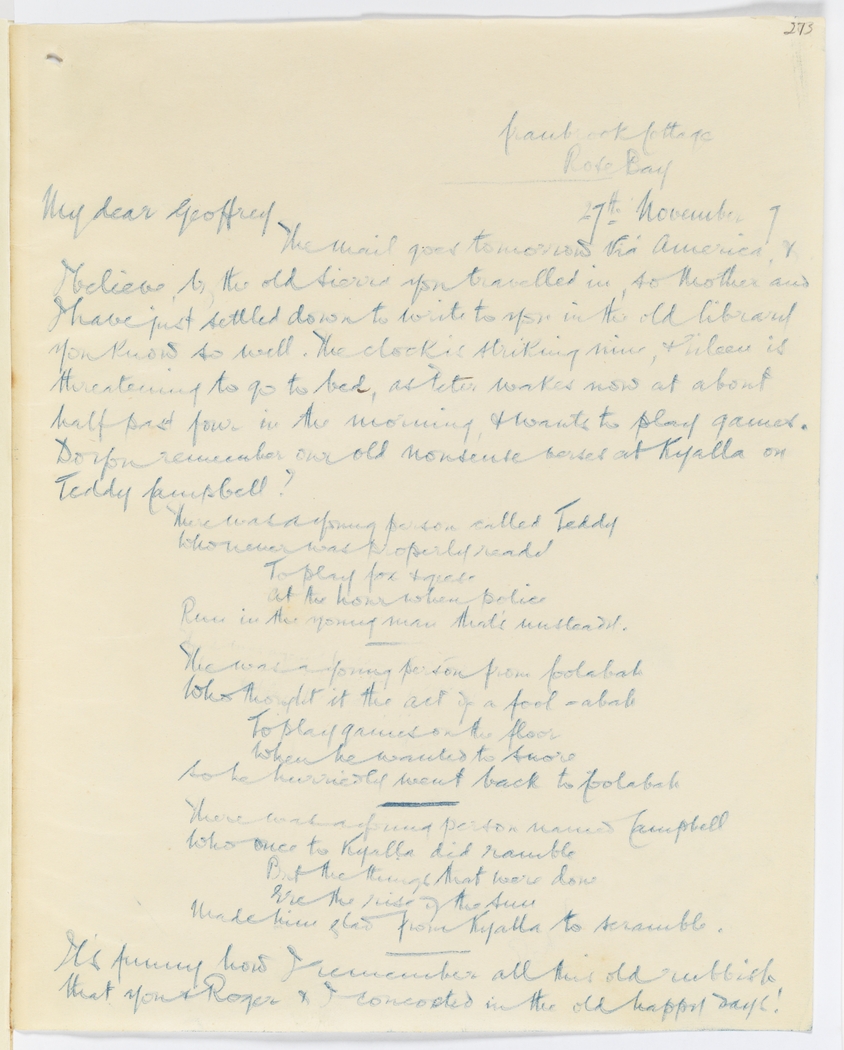 273
Cranbrook Cottage
Rose Bay
My dear Geoffrey
27th November 7
The mail goes tomorrow via America, &
I believe, by the old Sierra you travelled in, so Mother and
I have just settled down to write to you in the old library
you know so well. The clock is striking nine, & Eileen is
threatening to go to bed, as Peter wakes now at about
half past four in the morning, & wants to play games.
Do you remember our old nonsense verses at Kyalla on
Teddy Campbell?
There was a young person called Teddy
Who never was properly ready
To play fox & geese
At the hour when police
Run in the young man that's unsteady.
The was a young person from Coolabah
Who thought it the act of a fool-abah
To play games on the floor
When he wanted to snore
So he hurriedly went back to Coolabah
There was a young person named Campbell
Who once to Kyalla did ramble
But the things that were done
Ere the rise of the sun
Made him glad from Kyalla to scramble.
It's funny how I remember all this old rubbish
that you & Roger & I concocted in the old happy days!